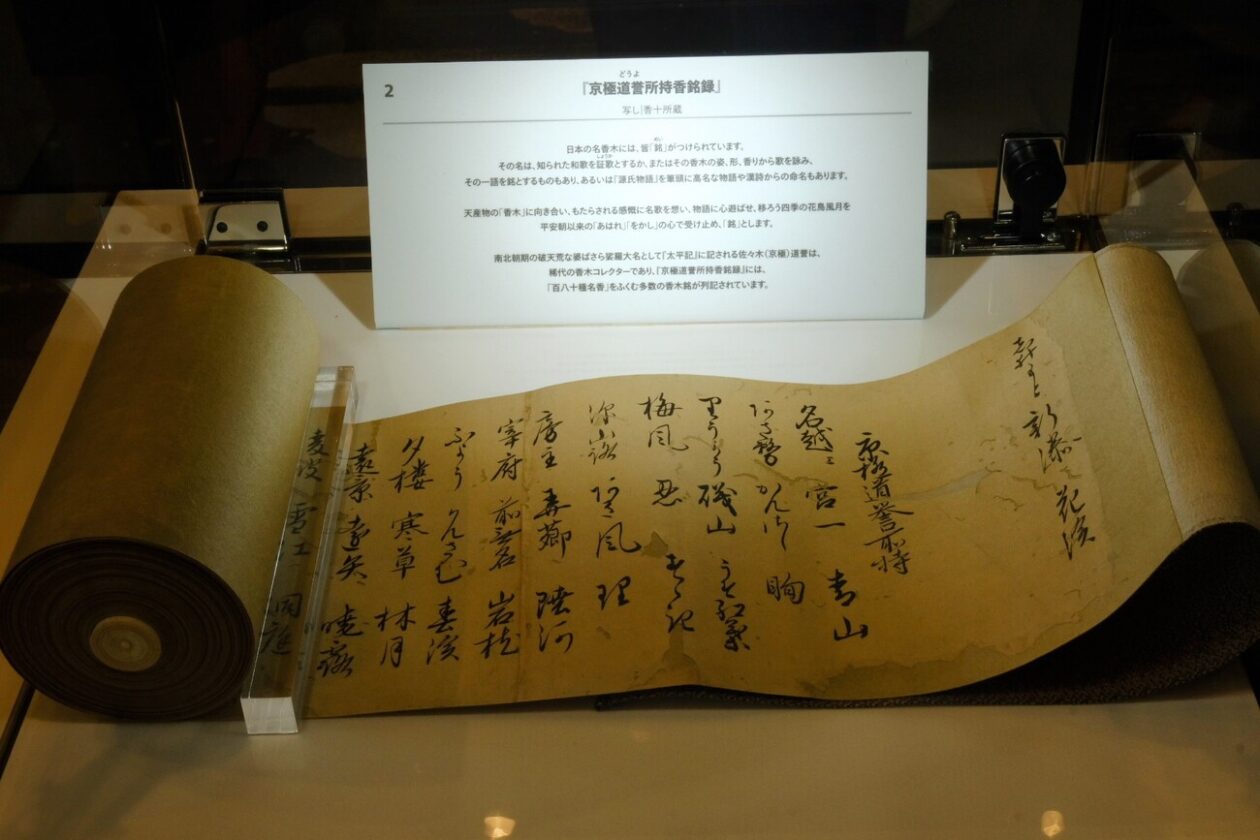 2
どうよ
『京極道誉所持香銘録』
写し|香十所蔵
めい
日本の名香木には、皆「銘」がつけられています。
しょうか
その名は、知られた和歌を証歌とするか、またはその香木の姿、形、香りから歌を詠み、
その一語を銘とするものもあり、あるいは『源氏物語』を筆頭に高名な物語や漢詩からの命名もあります。
天産物の「香木」に向き合い、もたらされる感慨に名歌を想い、物語に心遊ばせ、移ろう四季の花鳥風月を
平安朝以来の「あはれ」「をかし」の心で受け止め、「銘」とします。
南北朝期の破天荒な婆ばさら娑羅大名として『太平記』に記される佐々木(京極)道誉は、
稀代の香木コレクターであり、『京極道誉所持香銘録』には、
「百八十種名香」をふくむ多数の香木銘が列記されています。
花渓
京極道誉所持
名越 宮一 青山
磯山
梅風 忍
深山路 風 理
房主
宰府 岩枕
ふよう 春渓
夕楼 寒草 林月
遠京 遠矢 暁露
洞庭